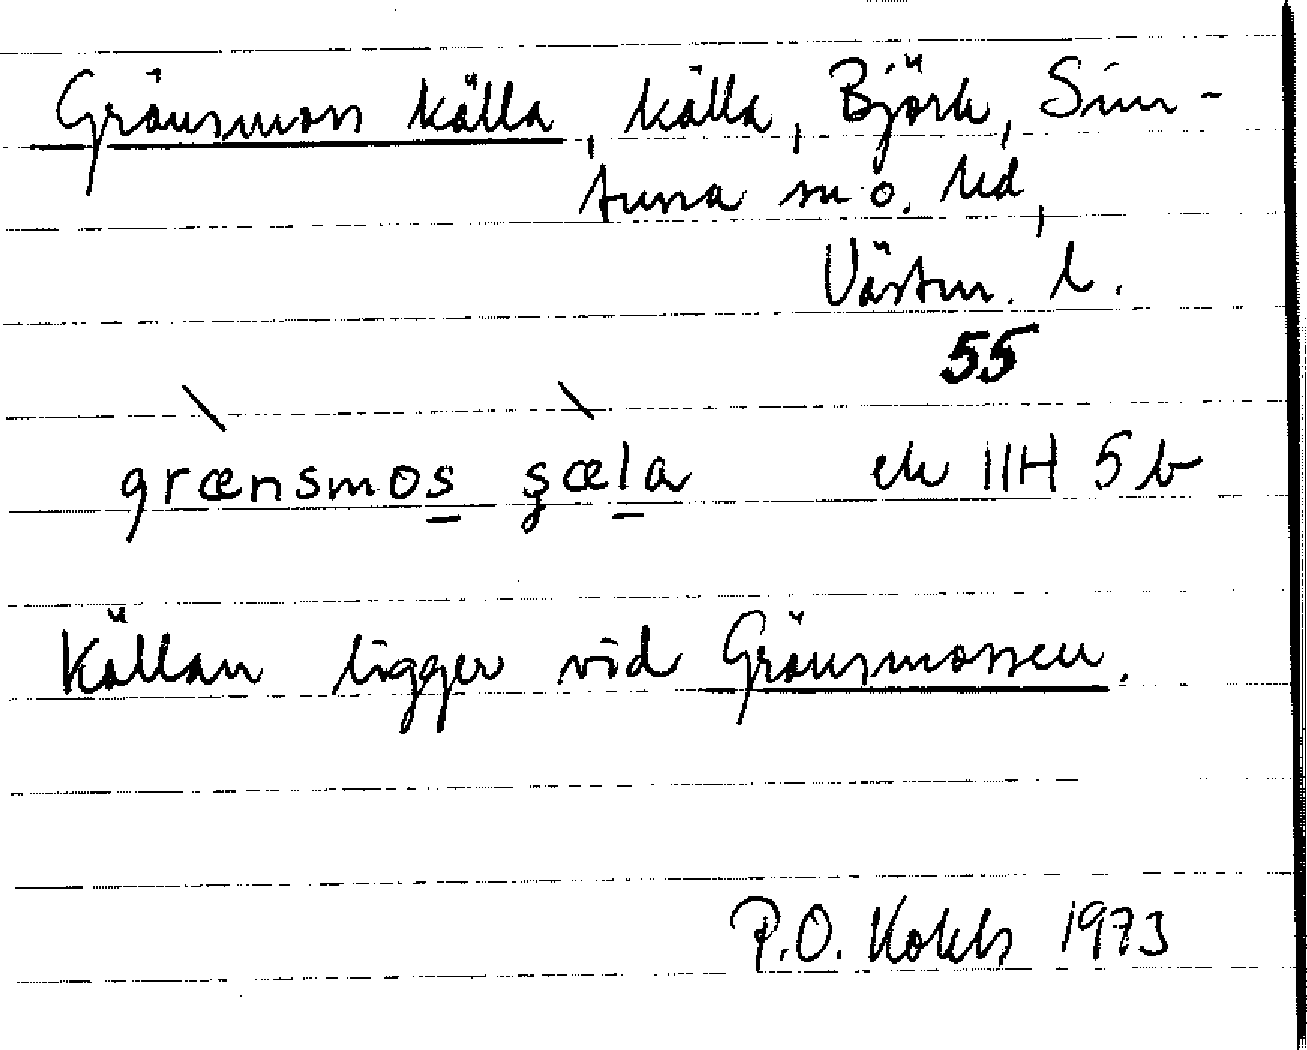 Gränsmoss källa, källa, Björk, Sim-
tuna sn o. hd,
Västm. l.
55
grænsmos şæla ek 11H 5b
Källan ligger vid Gränsmossen.
P.O. Kokk 1973